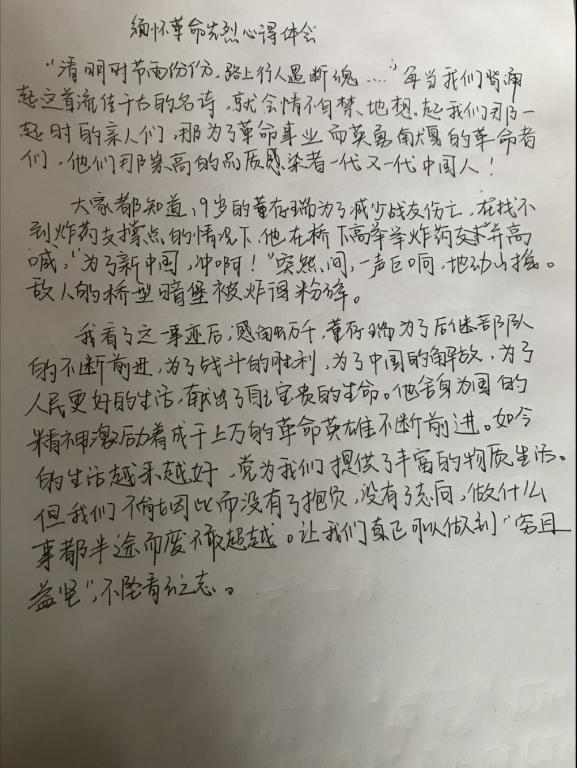 缅怀革命先烈心得体会
“清明时节雨份份，路上行人遇断魂....”每当我们背诵
起这首流传千古的名诗，就会情不自禁、地想起我们那一
起时的亲人们，那为了革命事业而英勇献的革命者
们，他们那崇高的品质感染着一代又一代中国人！
大家都知道，19岁的董存瑞为了减少战友伤亡，在找不
到炸药支撑点的情况下，他在桥下高举举炸药支并高
喊，“为了新中国，冲啊！”突然间，一声巨响，地动山摇。
敌人的桥型暗堡被炸得粉碎。
我看了这一事迹后，感自万千，董存瑞为了后继部队
的不断前进，为了战斗的胜利，为了中国的解放，为了
人民更好的生活，献出了自己宝贵的生命。他舍身为国的
精神激励着成千上万的革命英雄不断前进。如今
的生活越来越好，党为我们提供了丰富的物质生活。
但我们不能因此而没有了抱负，没有了志向，做什么
事都半途而废不敢超越。让我们真正可以做到“穷且
益坚”，不坠青云之志。